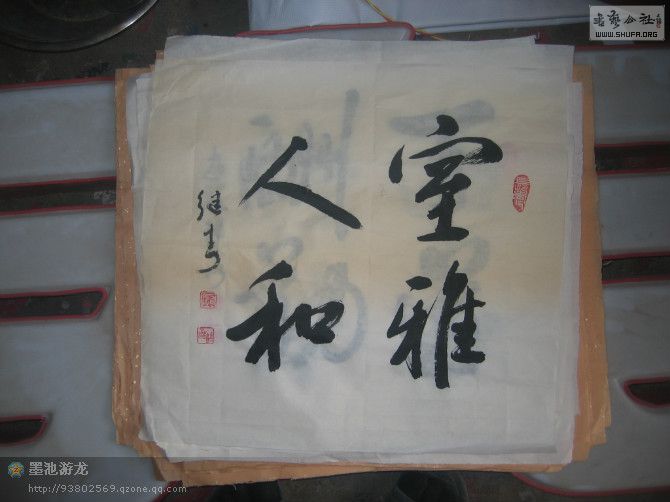 室雅
人和
继青
书艺公社
WWW.SHUFA.ORG
墨池游龙
http://93802569.qzone.qq.com